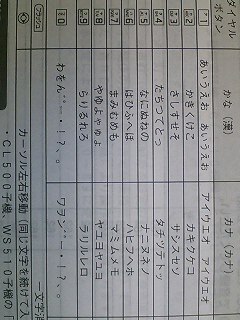 ダイヤルボタン かな(漢) カナ(カナ)
1 あいうえお ぁぃぅぇぉ アイウエオ ァィゥェォ
2 かきくけこ カキクケコ
3 さしすせそ サシスセソ
4 たちつてとっ タチツテトッ
5 なにぬねの ナニヌネノ
6 はひふへほ ハヒフヘホ
7 まみむめも マミムメモ
8 やゆよゃゅょ ヤユヨャュョ
9 らりるれろ ラリルレロ
0 わをん゛゜ー・!?、。 ワヲン゛゜ー・!?、。
カーソル左右移動(同じ文字を続けて入
フラッシュ 一文字消
・CL500子機、WS510子機の「